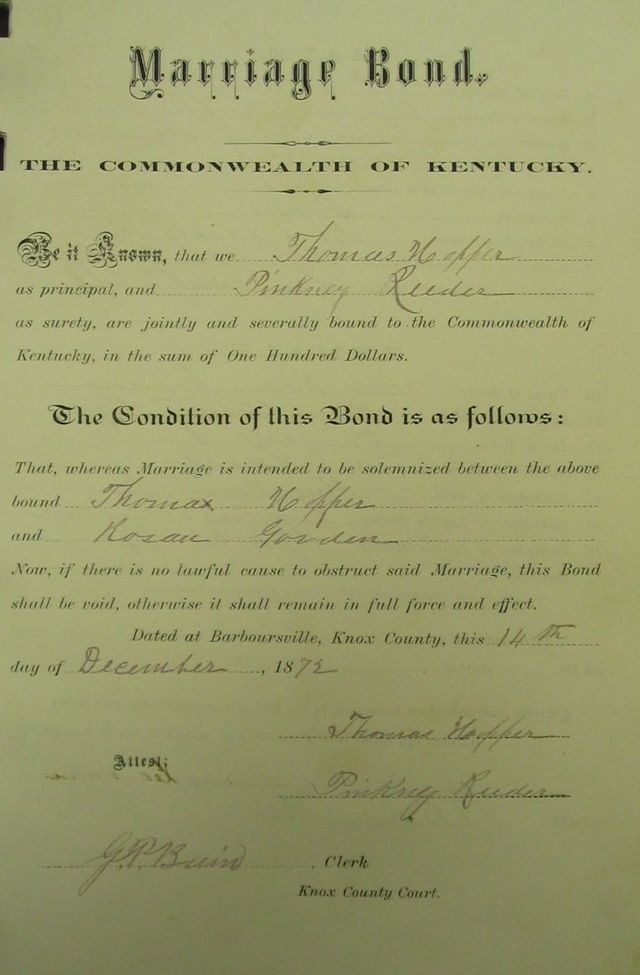 Marriage Bond.
THE COMMONWEALTH OF KENTUCKY.
Be it Known, that we Thomas Hopper
as principal, and Pinkney Reeder
as surety, are jointly and severally bound to the Commonwealth of
Kentucky, in the sum of One Hundred Dollars.
The Condition of this Bond is as follows:
That, whereas Marriage is intended to be solemnized between the above
bound Thomas Hopper
and Rosan Gooden
Now, if there is no lawful cause to obstruct said Marriage, this Bond
shall be void, otherwise it shall remain in full force and effect.
Dated at Barboursville, Knox County, this 14th
day of December, 1872
Thomas Hopper
Attest;
Pinkney Reeder
G.P. Bain, Clerk
Knox County Court.